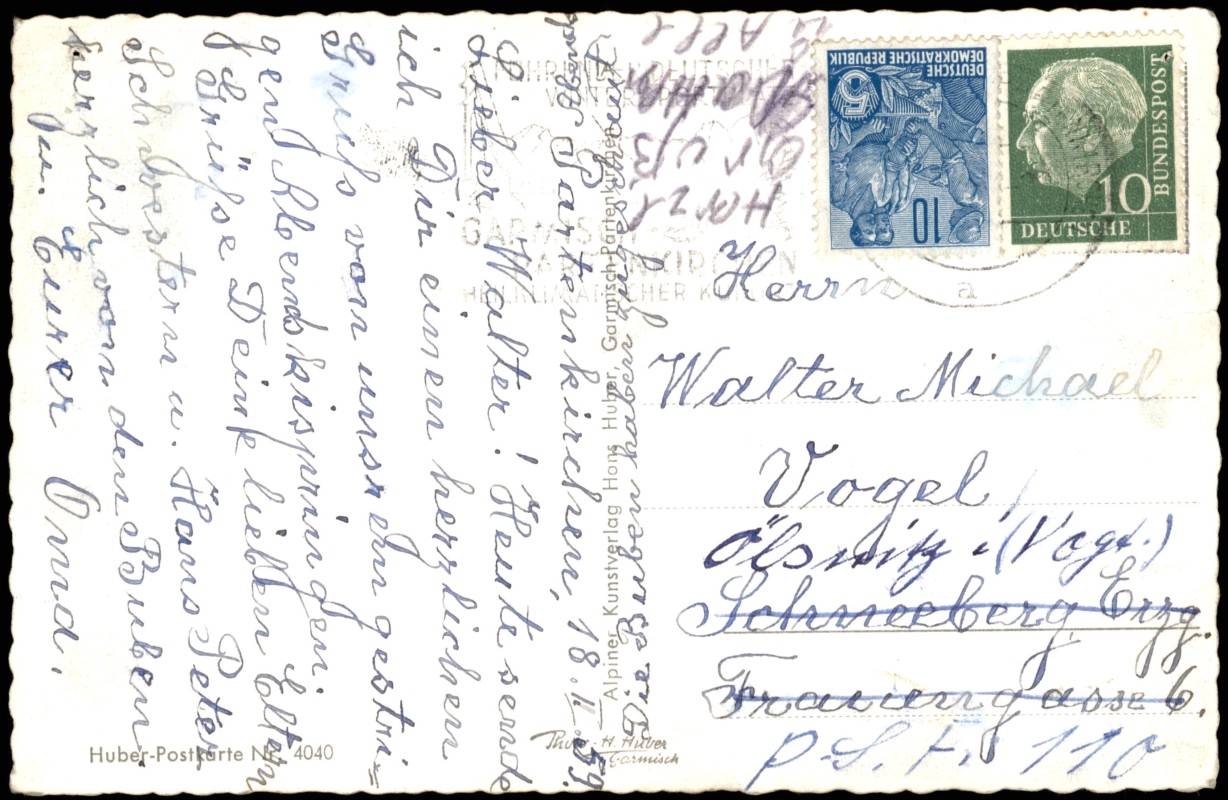 Garmisch-Partenkirchen, 18. II. 59.
Lieber Walter! Heute sende
ich Dir einen herzlichen
Gruß von unsrem gestri-
gen Abendskispringen.
Grüße Deine lieben Eltern
Schwestern u. Hans Peter
herzlich von den Buben
u. Eurer Oma.
Die Buben haben zugeschaut
Herzl
Gruß
u Alle
Herrn
Walter Michael
Vogel
Ölsnitz i. (Vogt.)
Schneeberg Erzg.
Frauengasse 6.
P.S.F. 110
Alpiner Kunstverlag Hans Huber, Garmisch-Partenkirchen
Huber-Postkarte Nr. 4040
Photo H. Huber
Garmisch
DEUTSCHE
DEMOKRATISCHE REPUBLIK
5
10
DEUTSCHE
BUNDESPOST
10
GARMISCH-
PARTENKIRCHEN
HEILKLIMATISCHER KURORT
a